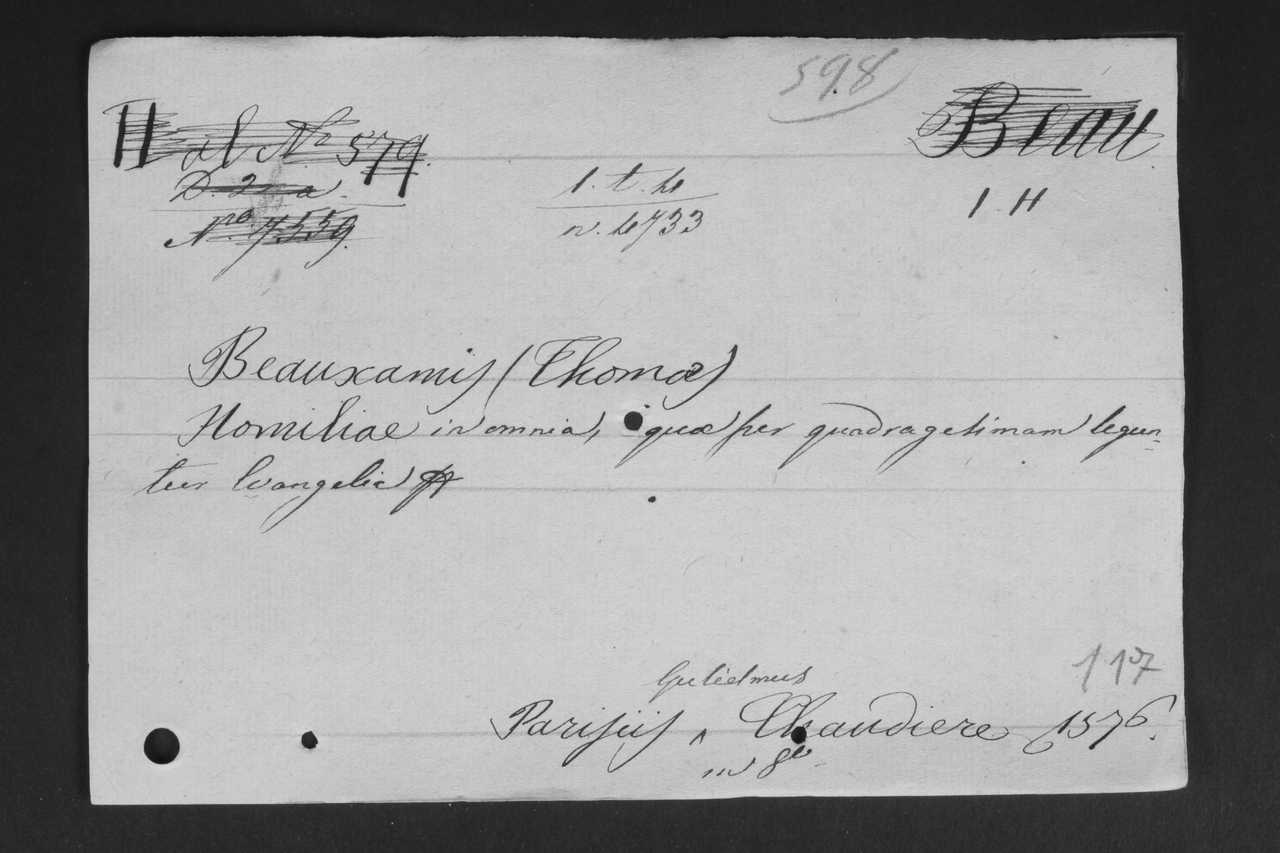 598
H al No 579.
Beau
D. 2 a.
1. t. 4
1 H
No. 7559.
n. 4733
Beauxamis (Thomæ)
Homiliae in omnia, quæ per quadragesimam legun-
tur Evangelia
117
Gulielmus
Parisiis ^ Chaudiere 1576.
in 8o